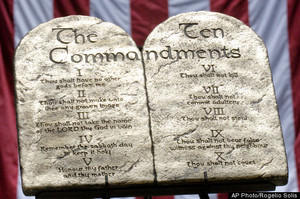 The Ten
Commandments
Thou shalt have no other
gods before me
II
Thou shalt not make unto
thee any graven image
III
Thou shalt not take the name
of the LORD thy God in vain
IV
Remember the sabbath day
to keep it holy
V
Honour thy father
and thy mother
VI
Thou shalt not kill
VII
Thou shalt not
commit adultery
VIII
Thou shalt not steal
IX
Thou shalt not bear false
witness against thy neighbour
Thou shalt not covet
AP Photo/Rogelio Solis